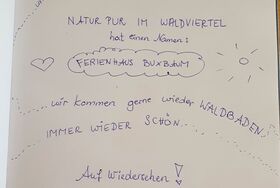 NATUR PUR IM WALDVIERTEL
hat einen Namen:
FERIENHAUS BUXBAUM
wir kommen gerne wieder WALDBADEN
IMMER WIEDER SCHÖN
Auf Wiedersehen!